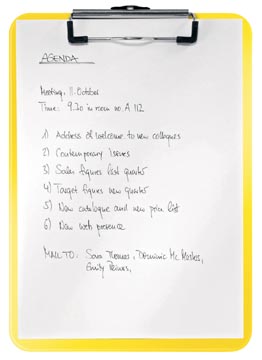 AGENDA
Meeting, 11. October
Time: 9.20 in room no. A 112
1) Address of welcome to new collegues
2) Contemporary Issues
3) Sales figures last quarter
4) Target figures new quarter
5) New catalogue and new price list
6) New web presence
MAIL TO: Sara Thomas, Dominic Mc
Emily